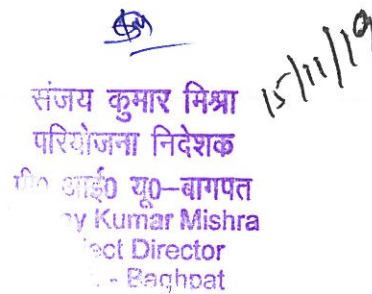 15/11/19
संजय कुमार मिश्रा
परियोजना निदेशक
आई0 यू0-बागपत
Kumar Mishra
Director
- Baghpat